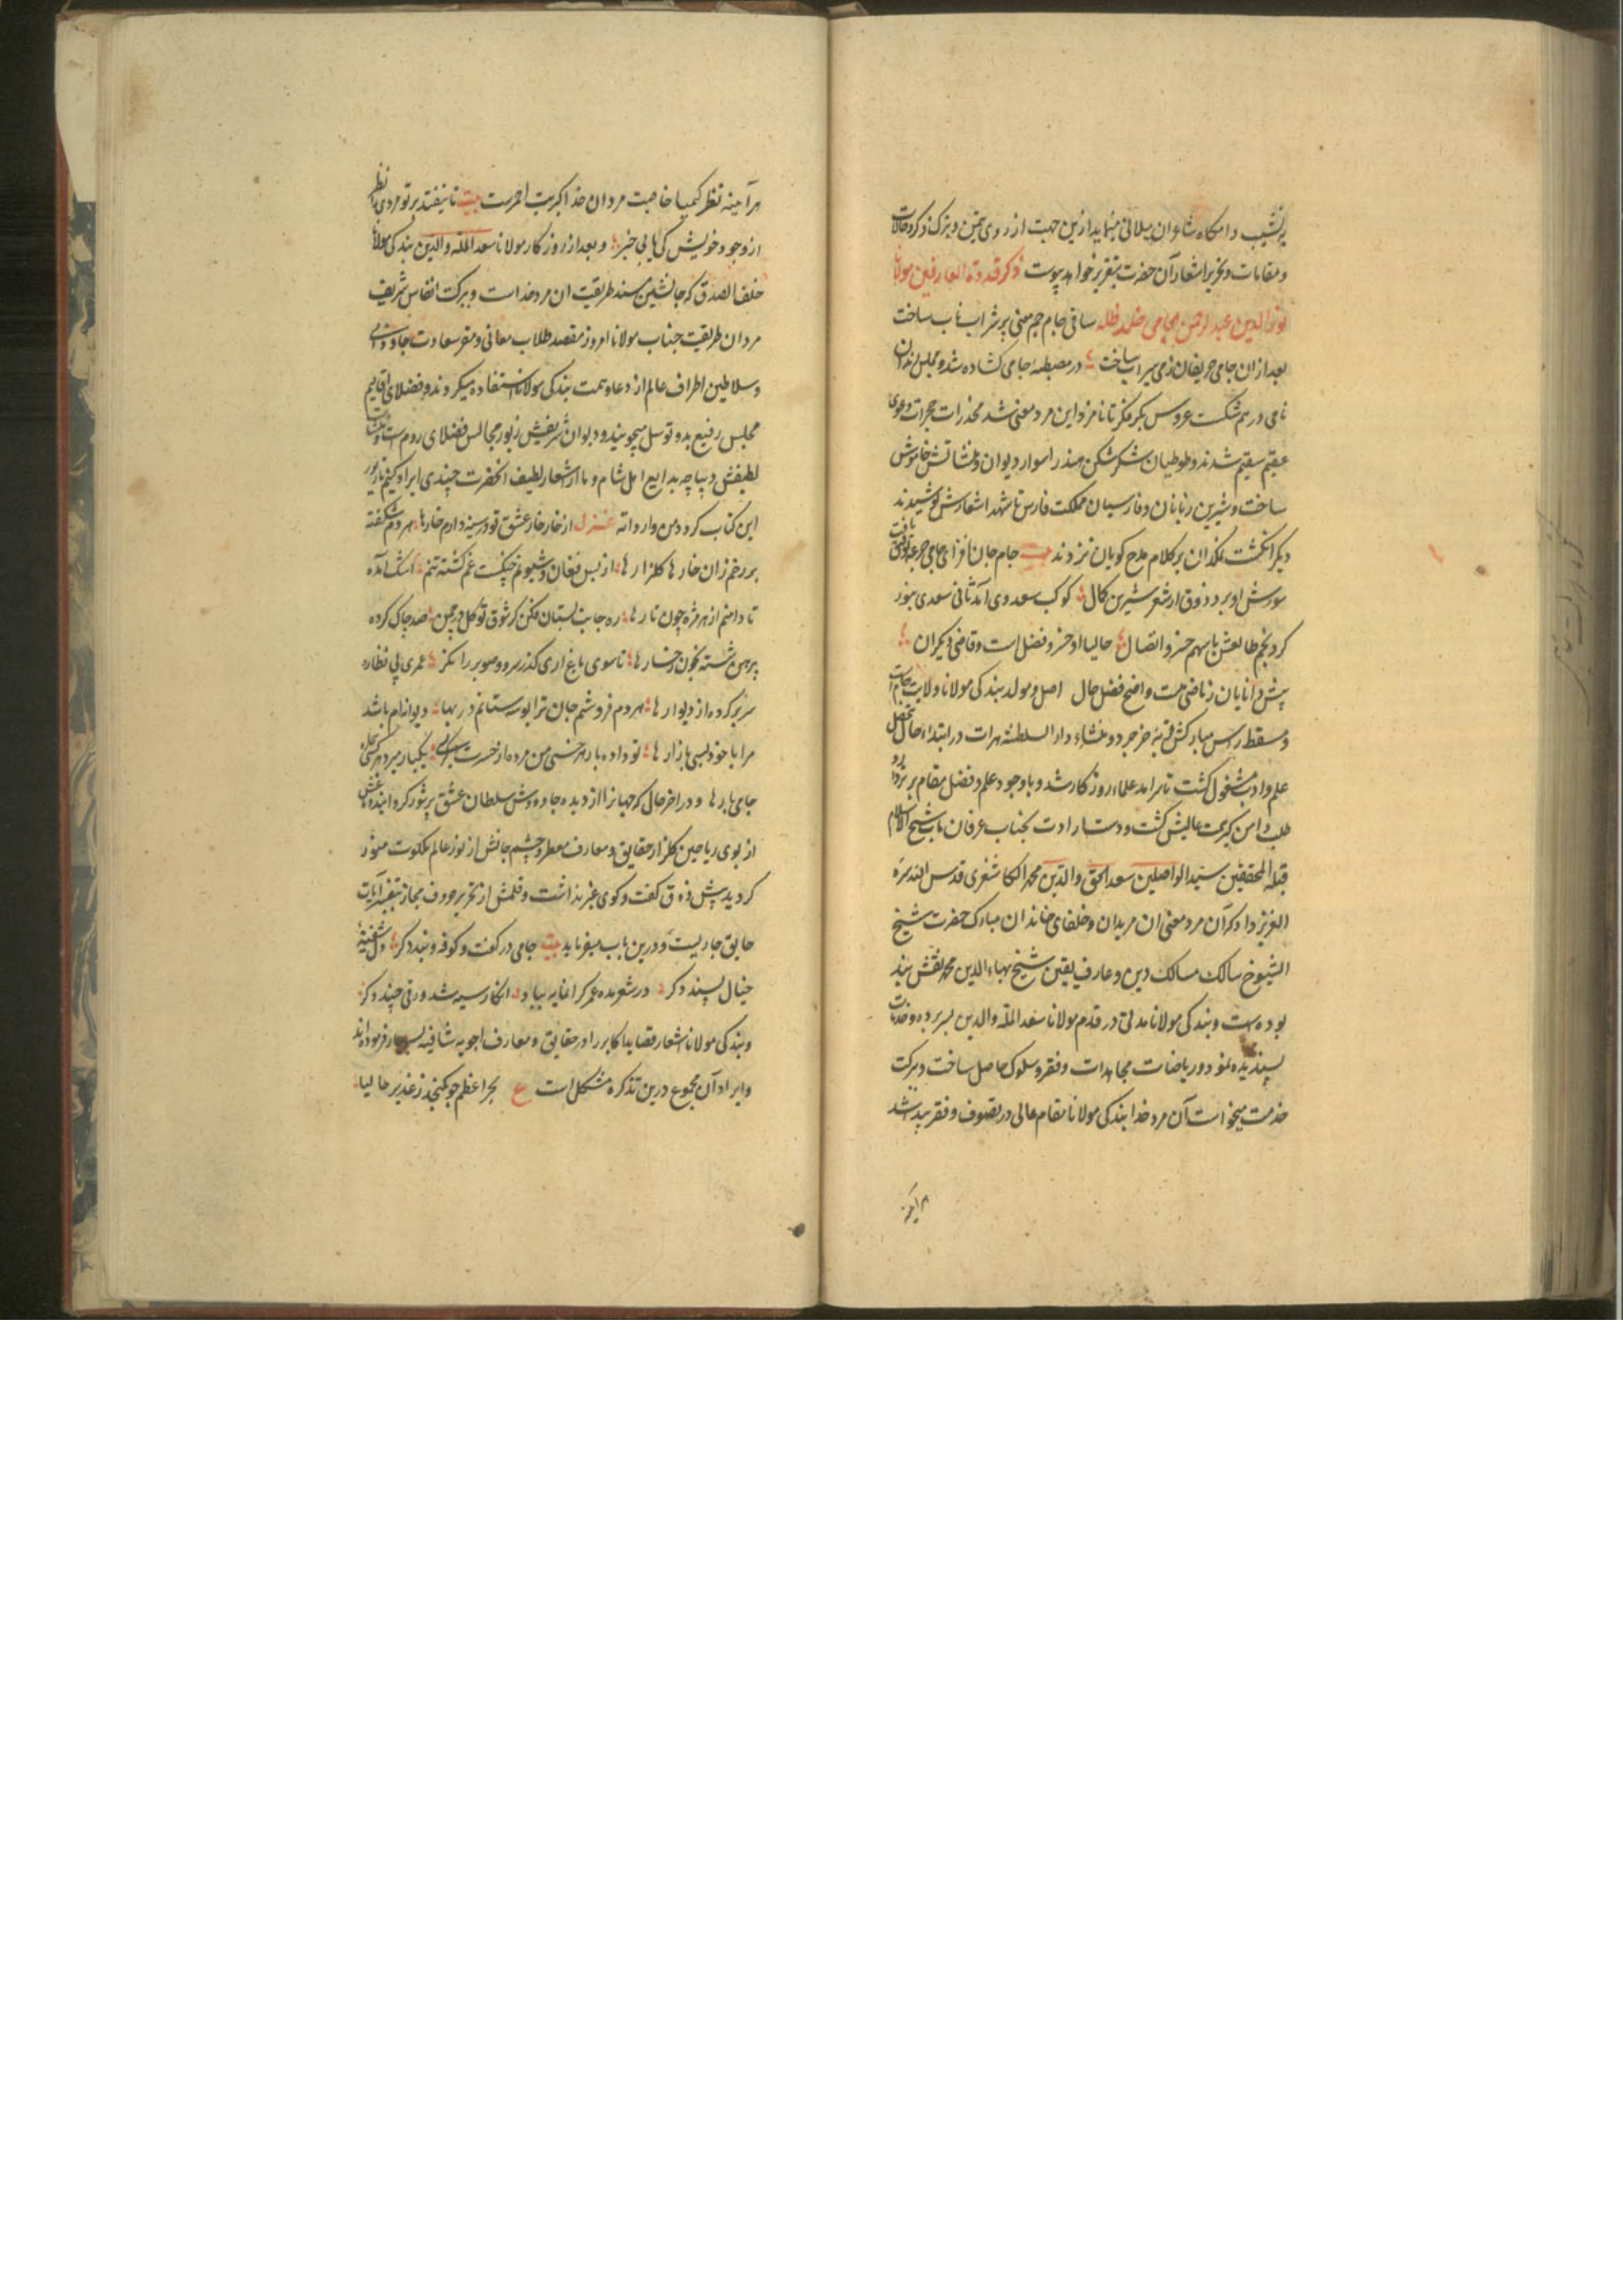 پرنشیب و دامکاه شاعران سیلانی مینماید ازین جهت از روی تیمن و تبرک ذکر و حالات
و مقامات و تحریر اشعار آن حضرت بتقریر خواهد پیوست ذکر قدوة العارفین مولانا
نور الدین عبد الرحمن جامی خلد ظله ساقی جام جم معنی پر شراب ناب ساخت
بعد ازان جامی حریفان زمی سیراب ساخت در مصطبه جامی کشاده شد و مجلس رندان
نامی در هم شکست عروس بکر فکر تا نامزد این مرد معنی شد مخدرات حجرات دعوی
عقیم سقیم شدند و طوطیان شکر شکن هند را سواد دیوان و منشاتش خاموش
ساخت و شیرین زبانان و فارسیان مملکت فارس تا شهد اشعارش نوشیدند
دیکر انکشت بر نمکدان کلام ملیح کویان نزدند بیت جام جان افزای جامی جرعه توفیق یافت
شورش او برد ذوق از شعر شیرین کمال کوکب سعد وی آمد ثانی سعدی بنور
کرد نجم طالعش با سهم خسرو اتصال حالیا او خسرو فضل است و قاضی دیکران
پیش دانایان ز ماضی هست واضح فضل حال اصل و مولد بندکی مولانا ولایت جام است
و مسقط راس مبارکش قریه خرجرد و منشاء دار السلطنة هرات در ابتداء حال بتحصیل
علم و ادب مشغول کشت تا سرامد علماء روزکار شد و با وجود علم و فضل مقام برتر درد
طلب دامن کیر همت عالیش کشت و دست ارادت بجناب عرفان ماب شیخ الاسلام
قبله المحققین سید الواصلین سعد الحق والدین محمد الکاشغری قدس الله سره
العزیز داد که آن مرد معنی از مریدان و خلفای خاندان مبارک حضرت شیخ
الشیوخ سالک مسالک دین و عارف یقین شیخ بهاء الدین محمد نقش بند
بوده است و بندکی مولانا مدتی در قدم مولانا سعد المله والدین بسر برده و خدمات
پسندیده نمود و ریاضات مجاهدات و فقر و سلوک حاصل ساخت و ببرکت
خدمت میخواست آن مرد خدا بندکی مولانا مقام عالی در تصوف و فقر پید شد
هر آینه نظر کیمیا خاصیت مردان خدا کبریت احمرست بیت تا نیفتد بر تو مردی را نظر
از وجود خویش کی یابی خبر و بعد از روزکار مولانا سعد المله والدین بندکی مولانا
خلف الصدق که جانشین مسند طریقت ان مرد خداست و ببرکت انفاس شریف
مردان طریقت جناب مولانا امروز مقصد طلاب معانی و مقر سعادت جاودانی
و سلاطین اطراف عالم از دعا و همت بندکی مولانا استفاده میکردند و فضلای اقالیم
مجلس رفیع بدو توسل میجویند و دیوان شریفش زیور مجالس فضلای روم است و منشات
لطیفش دیباچه بدایع اهل شام و ما از اشعار لطیف انحضرت چندی ایراد کنیم تا زیور
این کتاب کردد من وارداته غزل از خار خار عشق تو در سینه دارم خارها هر دم شکفته
بر رخم زان خارها کلزارها از بس فغان و شیونم چنکیست خم کشته تنم اشک آمده
تا دامنم از هر مژه چون تارها ره جانب بستان فکن کز شوق تو کل در چمن صد چاک کرده
پیرهن شسته بخون رخسارها تا سوی باغ اری کذر سرو و صنوبر را نکر عمری پی نظاره
سر بر کرده از دیوارها هر دم فروشم جان ترا بوسه ستانم در بها دیوانه‌ام باشد
مرا با خود بسی بازارها تو داده بار هر خسی من مرده از غیرت بسی یکبار میرد هر کسی
جامی بارها و در اخر حال که جهانرا از دیده جادوش سلطان عشق پر شور کردانیده
از بوی ریاحین کلزار حقایق و معارف معطر و چشم جانش از نور عالم ملکوت منور
کردید پیش ذوق کفت و کوی غیر نداشت و قلمش از تحریر حروف مجاز بتفسیر آیات
حقایق جاریست و درین باب میفرماید بیت جامی در کفت و کو فرو بند دکر دل شیفتهٔ
خیال پسند دکر در شعر مده عمر کرانمایه بباد انکار سیه شد ورقی چند دکر
و بندکی مولانا اشعار قصاید اکابر را در حقایق و معارف اجوبه شافیه بسیار فرموده‌اند
و ایراد آن مجموع درین تذکره مشکل است ع بحر اعظم جو کنجد ز غدیر حالیا